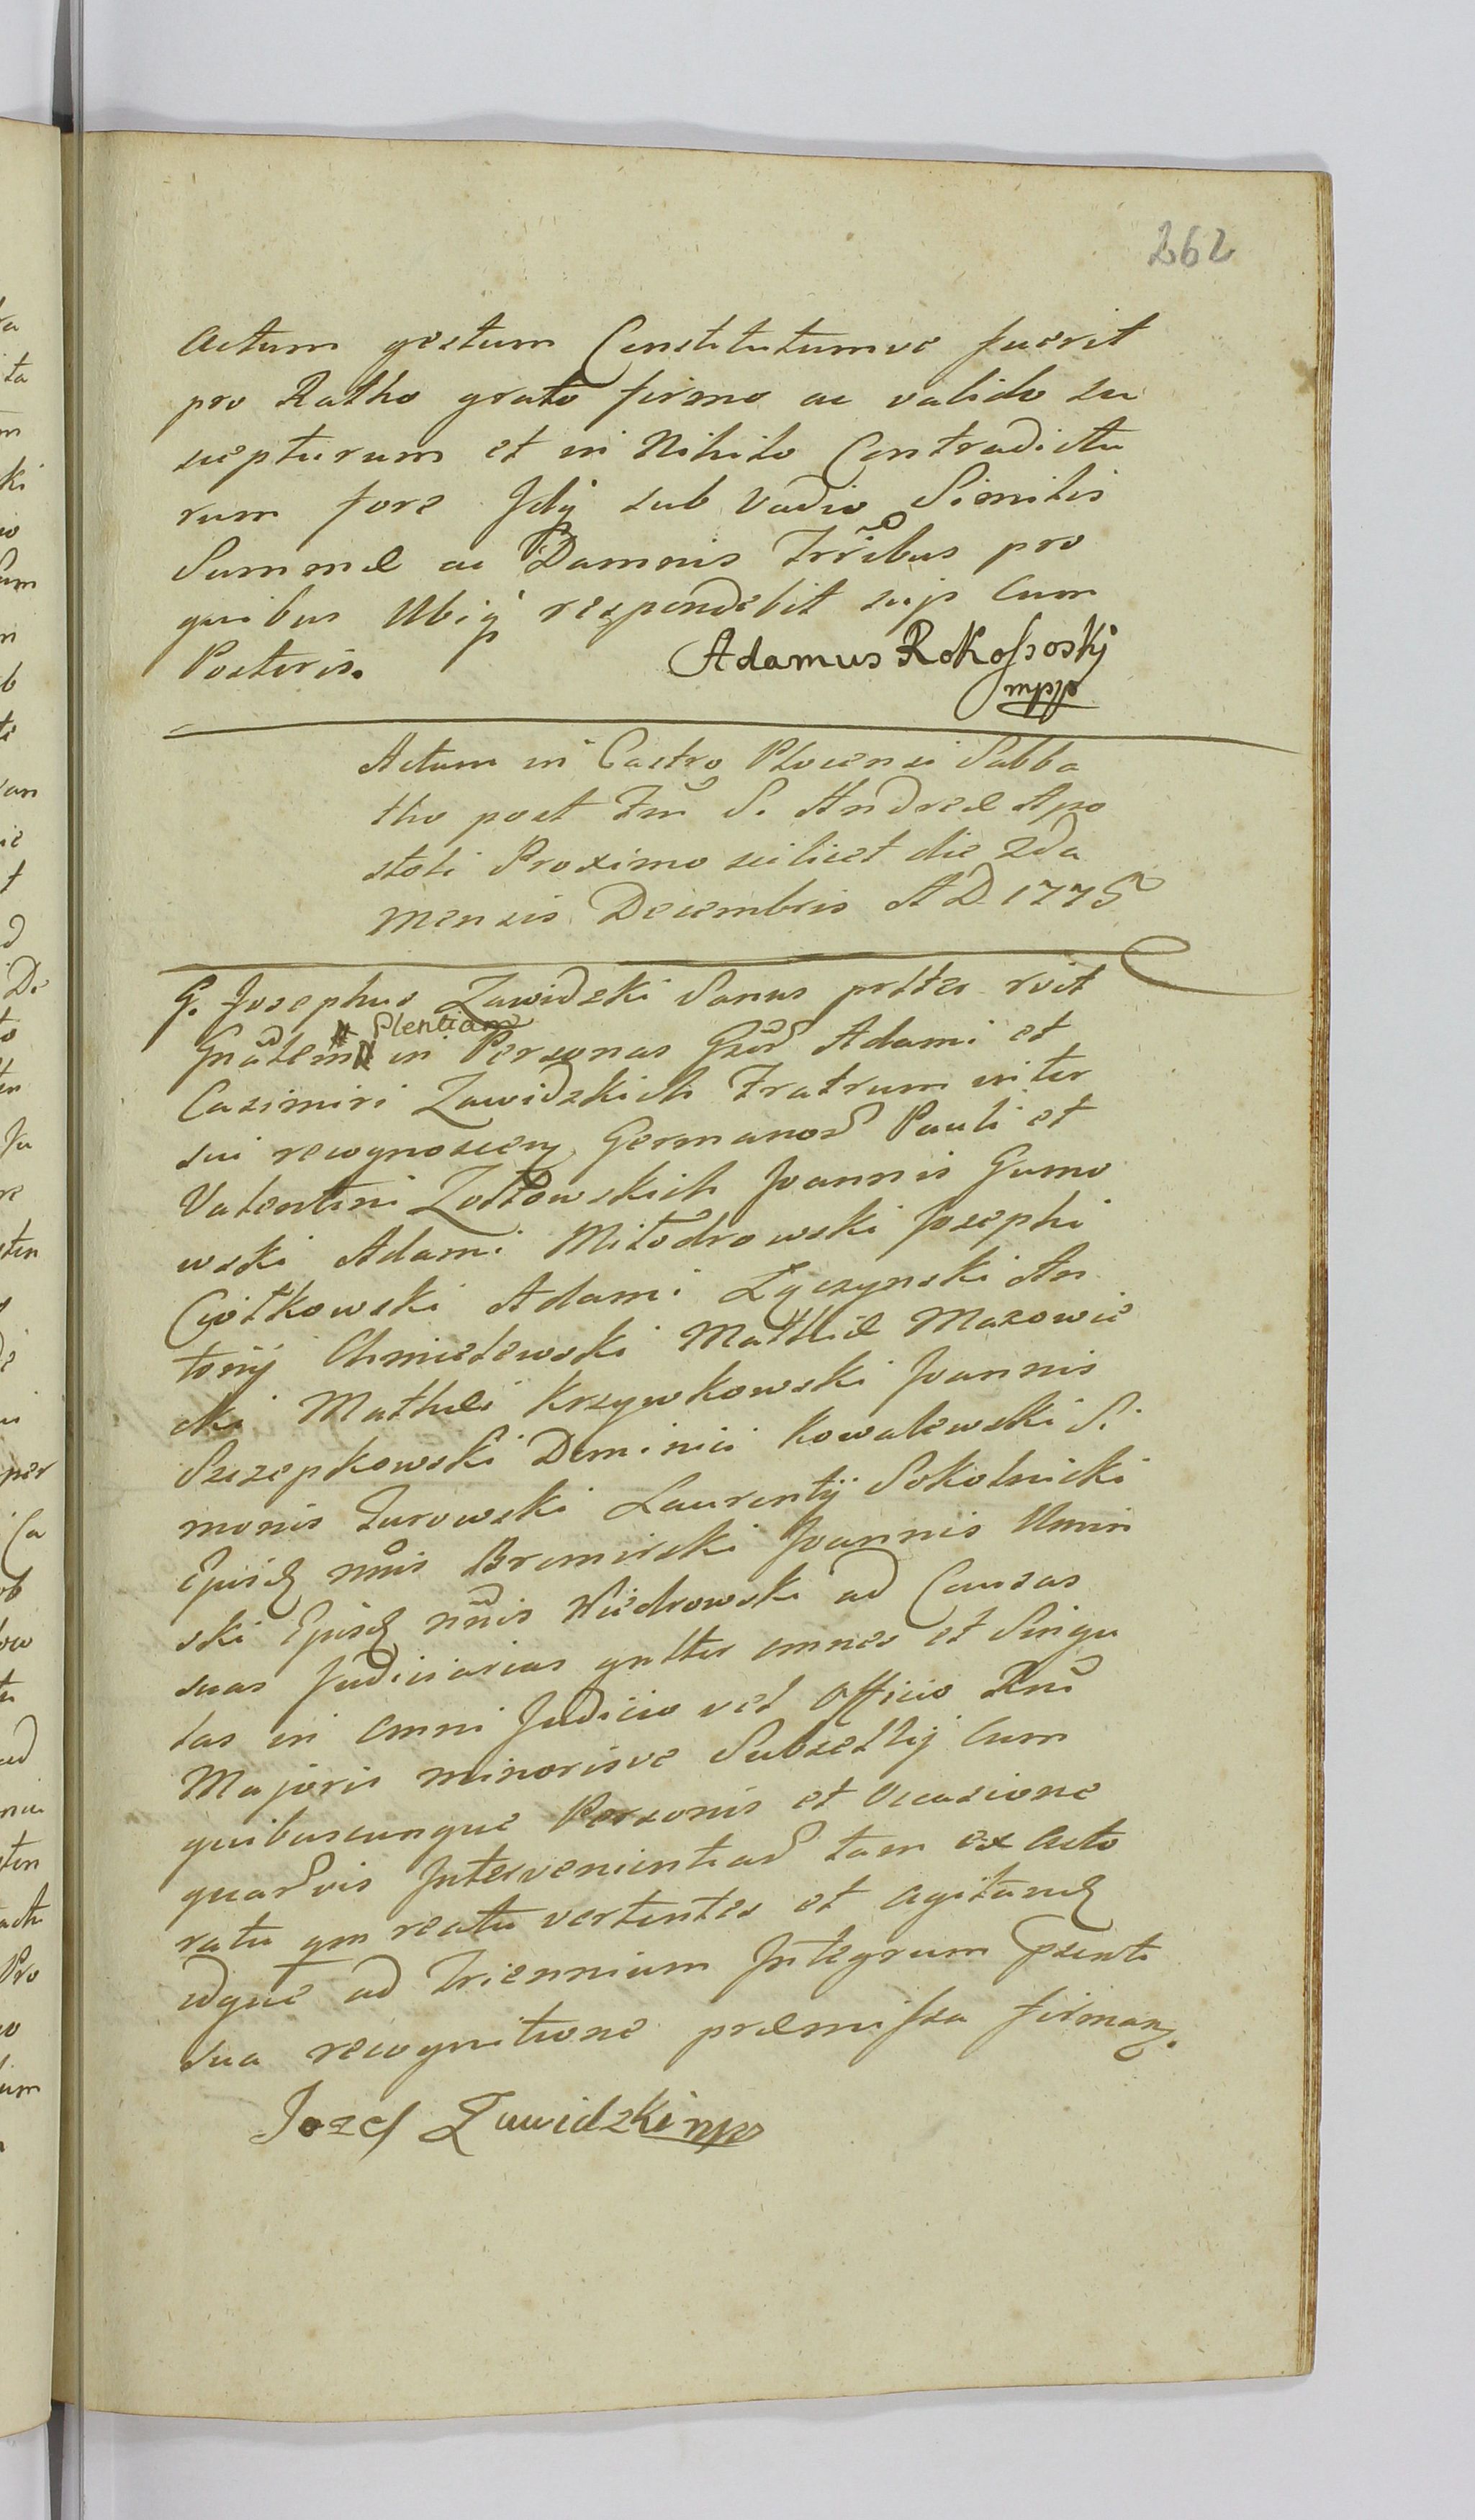 262
Actum gestum Constitutumve fuerit
pro Ratho grato firmo ac valido su
scepturum et in Nihilo Contradictu
rum fore Idq sub Vadio Similis
Summæ ac Damnis Trribus pro
quibus Ubiq respondebit sup cum
Posteris. Adamus Rokossoskj
mpp
Actum in Castro Plocensi Sabba
tho post Fm S. Andreæ Apo
stoli Proximo scilicet die 2da
Mensis Decembris AD 1775
G. Josephus Zawidzki Sanus prttes rvit
Gnalem # Plentiam in Personas Gsor Adami et
Casimiri Zawidzkich Fratrum inter
sui recognoscen Germanor Pauli et
Valentini Zołtowskich Joannis Gumo
wski Adami Miłodrowski Josephi
Ciołkowski Adami Łyczynski An
tonij Chmielewski Mathiæ Mazowie
cki Mathei Krzywkowski Joannis
Szczepkowski Dominici Kowalewski Si
monis Żurowski Laurentij Sokolnicki
Ejusd nnis Bromirski Joannis Umin
ski Ejusd nnis Niedrowski ad Causas
suas Judiciarias gnltter omnes et Singu
las in omni Judicio vel Officio Rni
Majoris minorisve Subsellij cum
quibuscunque Personis et Occasione
quarvis Intervenientiar tam ex acto
ratu qm reatu vertentes et agitand
idque ad Triennium Integrum psenti
sua recognitione præmissa firman.
Jozef Zawidzki mp